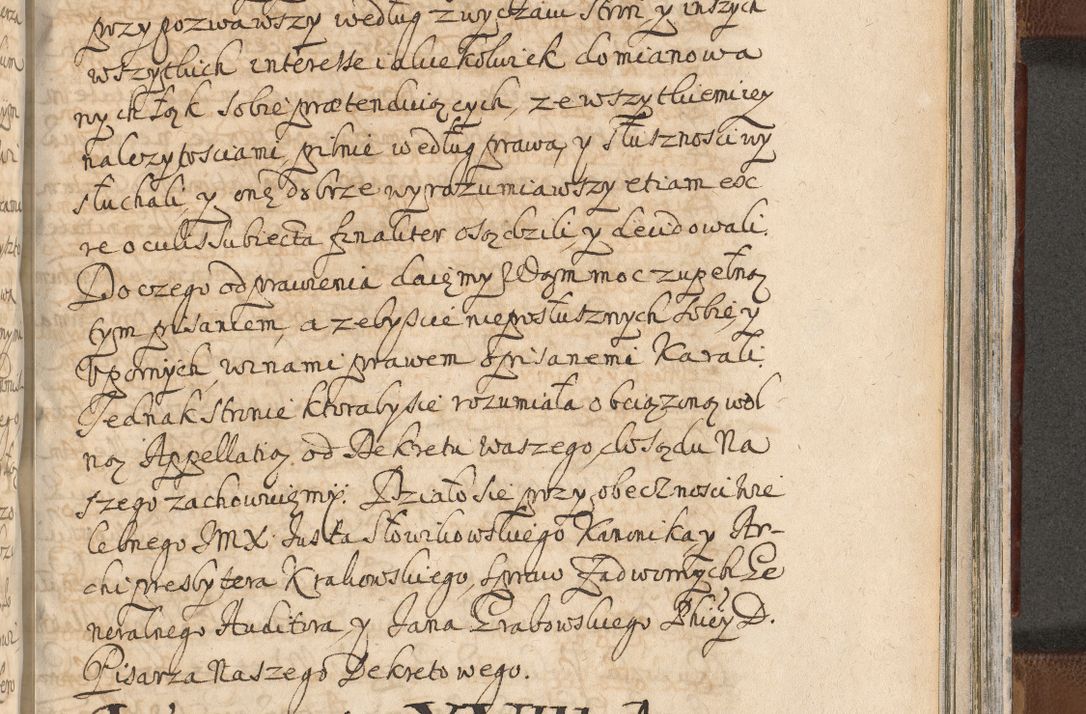 przypozwawszy według zwyczaiu stron y inszych
wszytkich interesse iakiekolwiek do mianowa
nych łąk sobie prætenduiących, ze wszytkiemi iey
nalezytosciami, pilnie według prawa, y słusznosci wy
słuchali, y onę dobrze wyrozumiawszy etiam eoc
re oculis subiecta finaliter osądzili, y decidowali.
Do czego odprawienia daięmy Wam moc zupełną
tym pisaniem, a zebyscie nieposłusznych sobie, y
Vpornych, winami prawem opisanemi Karali.
Jednak stronie ktoraby sie rozumiała obciązoną wol
ną Appellatią od Dekretu waszego, do sądu Na
szego zachowuięmy. Działo sie przy obecznosci Wie
lebnego JMX. Justa Słowikowskiego Kanonika y Ar-
chipresbytera Krakowskiego, spraw Zadwornych Ge
neralnego Auditora, y Jana Grabowskiego D.
Pisarza Naszego Dekretowego.